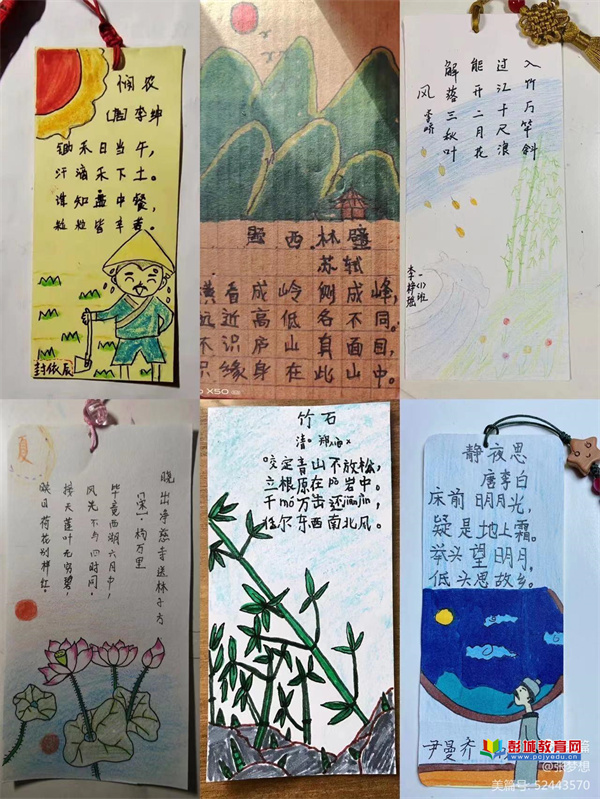 悯农
[唐]李绅
锄禾日当午,
汗滴禾下土。
谁知盘中餐,
粒粒皆辛苦。
题西林壁
苏轼
横看成岭侧成峰,
远近高低各不同。
不识庐山真面目,
只缘身在此山中。
X50
风
李峤
解落三秋叶
能开二月花
过江千尺浪
入竹万竿斜
一(1)班
李梓瑶
晓出净慈寺送林子方
[宋]·杨万里
毕竟西湖六月中,
风光不与四时同。
接天莲叶无穷碧,
映日荷花别样红。
竹石
清。郑
咬定青山不放松,
立根原在风岩中。
千mó万击还jiānjìn,
任尔东西南北风。
静夜思
唐李白
床前明月光,
疑是地上霜。
举头望明月,
低头思故乡。
尹曼齐
彭城教育网
www.pcjyedu.cn
梦想
美篇号:52443570